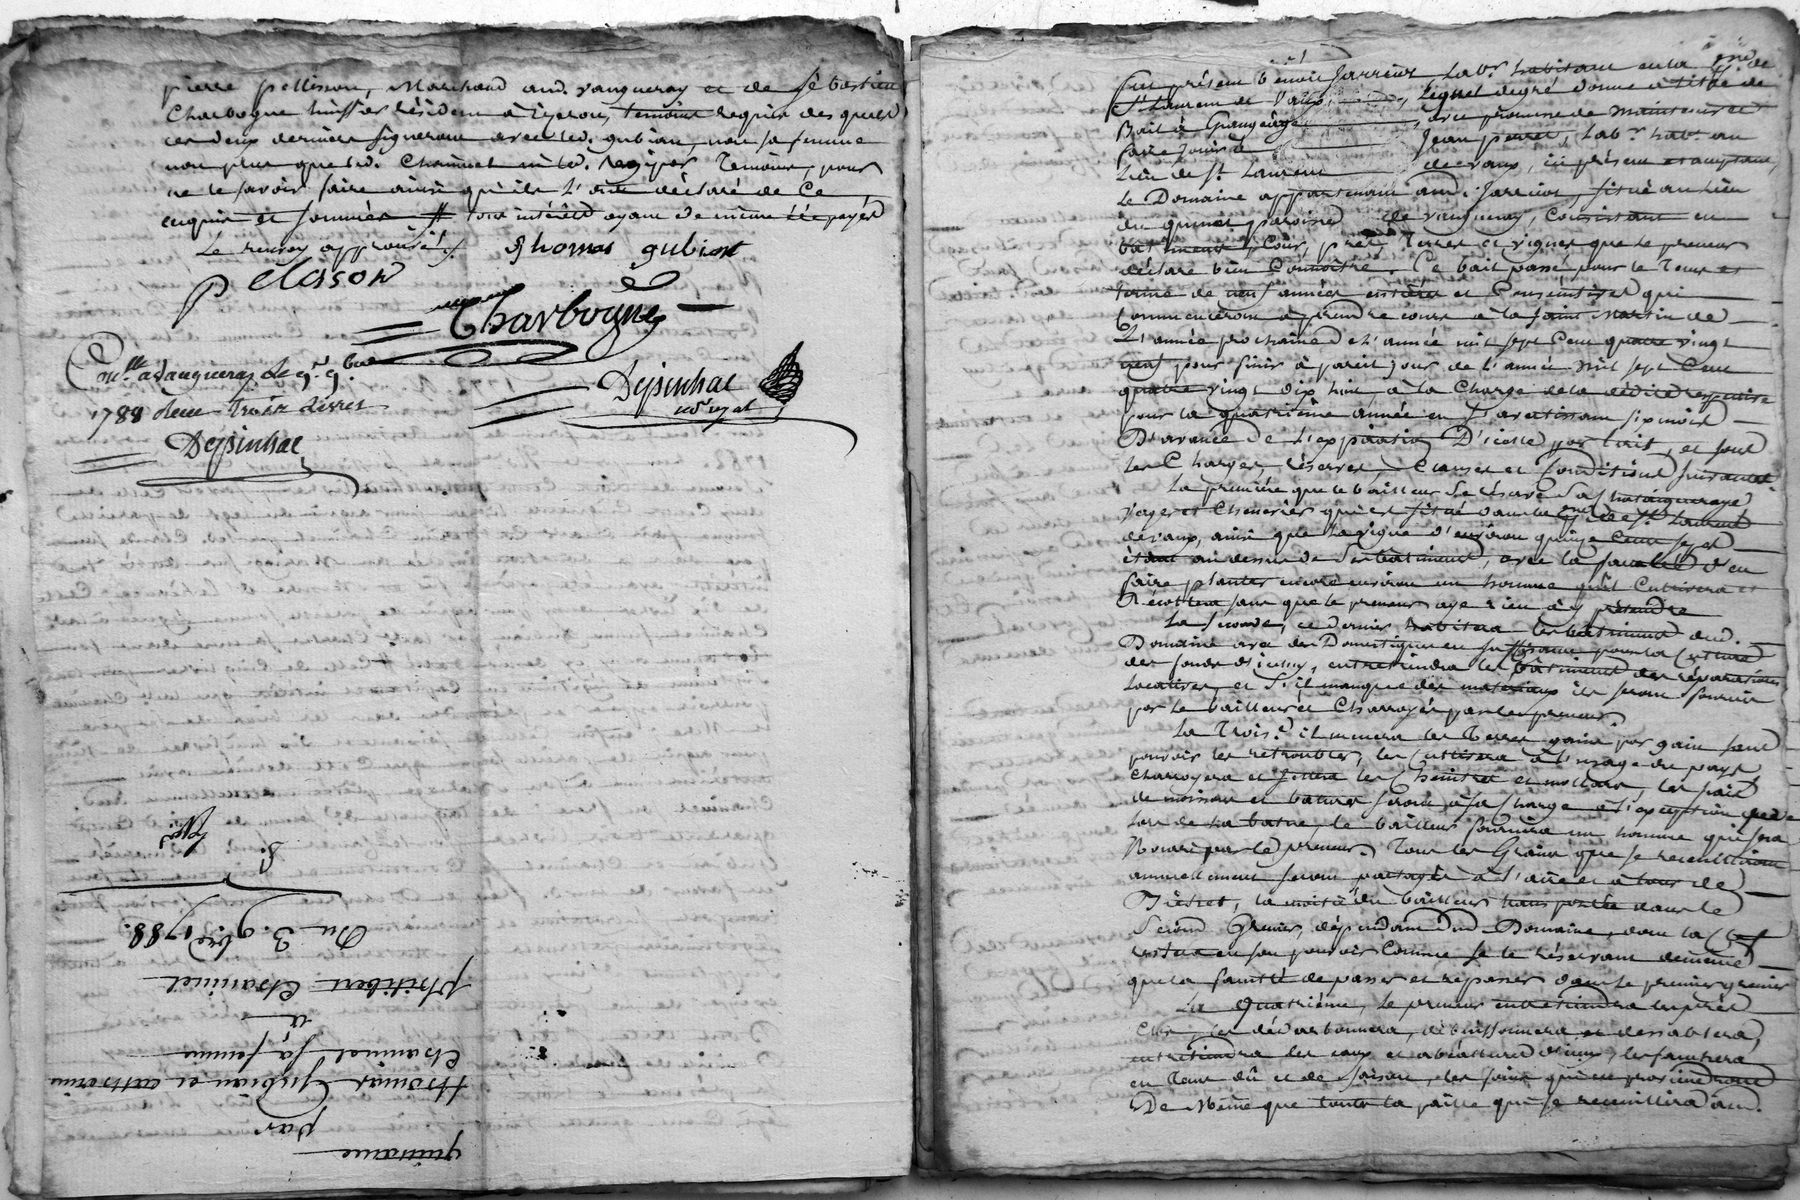 pierre pellisson, Marchand aud. vaugneray et de Sébastien
Charbogne huissier résident à izeron, temoins requis des quels
ces deux derniers signeront avec led. gubian, non sa femme
non plus que led. Chaninet ni led. temoins, pour
ne le savoir faire ainsi qu'ils l'ont déclaré de ce
enquis et sommés # tous intérêts ayant de même été payés
Le renvoy approuvé
thomas gubian
Pelisson
Charbogne
Con.lle a Vaugneray le 9.e 9.bre
1788 reçu trois livres
Depinhac
Depinhac
no.re royal
quittance
par
thomas Gubian et catherine
Chaninel sa femme
à
philibert Chaninel
Du 3. 9bre 1788.
Fut présent benoit Jarricot, lab.r habitant en la
St Laurent de Vaux, lequel degré donne à titre de
Bail à Grangeage, avec promesse de maintenir et
faire jouir à Jean perret, lab.r hab.t au
lieu de St. Laurent de vaux, ici présent et acceptant,
Le Domaine appartenant aud. Jarricot, situé au lieu
du quinet paroisse de vaugneray, Consistant en
batiments, Cour, prés, Terres et vignes que le preneur
déclare bien Connoitre. Ce bail passé pour le Tems et
terme de neuf années entières et Consécutives qui
Commenceront à prendre cours à la saint Martin de
L'année prochaine et l'année mil sept Cent quatre vingt
neuf pour finir à pareil jour de l'année mil sept Cent
quatre vingt dix huit, à la Charge de la dédite respective
pour la quatrième année en s'avertissant six mois
D'avance de l'expiration D'icelle par écrit, et sous
les Charges, réserves Clauses et Conditions suivantes.
La première que le bailleur se réserve sa
et Chenevier qui est situé dans la de St. Laurent
devaux, ainsi que la vigne d'environ quinze
étant au dessus de Sesbatiments, avec la faculté d'en
faire planter encore environ un homme qu'il Cultivera et
Récoltera sans que le preneur aye rien à y prétendre
La seconde, ce dernier habitera les batiments dud.
Domaine avec des Domestiques en suffisance pour la Culture
des fonds d'icelui, entretiendra les batiments des réparations
locatives, et S'il manque des matériaux ils seront fournis
par le bailleur et Charroyés par le preneur.
La Trois.e il menera les Terres gain par gain sans
pouvoir les retroubler, les Cultivera à l'usage du pays
Charroyera et les Cheintres et mollars, les frais
de moisson et batture seront à sa Charge à l'exception que
lors de la battue, le bailleur fournira un homme qui sera
Nourri par le preneur. Tous les Grains qui se recueilliront
annuellement seront partagés à l'aire et à tous de
la moitié du bailleur transportée dans le
Second Grenier, dépendant dud. Domaine, dont la Clef
restera en son pouvoir Comme se le réservant demême
que la faculté de passer et repasser dans le premier grenier
La Quatrième, le preneur entretiendra les prés
Clos, les dédarbonnera, débuissonnera et dessablera,
entretiendra les eaux et abéalures d'iceux, les fauchera
en Tems dû et de Saison, les foins qui en proviendront
De Même que toute la paille qui se recueillira aud.